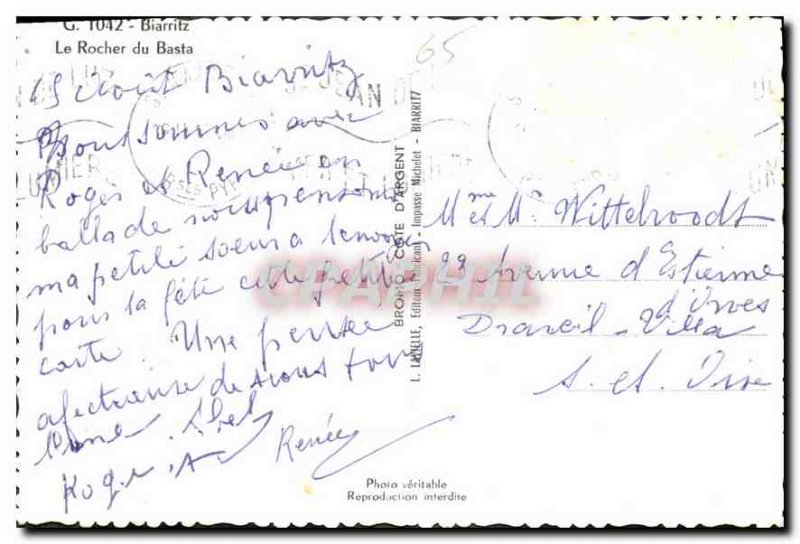 G. 1042 - Biarritz
Le Rocher du Basta
15 Août Biarritz
Nous sommes avec
Roger et Renée en
ballade nous pensons
ma petite soeur a t'envoyer
pour ta fête cette petite
carte. Une pensée
afectueuse de nous tous
Abel
Roger. Renée
65
BROMO COTE D'ARGENT
Impasse Michelet - BIARRITZ
Mme et Mr Wittebroodt
29 Avenue d'Estienne
d'Orves
Draveil - Villa
S. et. Oise
Photo véritable
Reproduction interdite
CPAPHIL